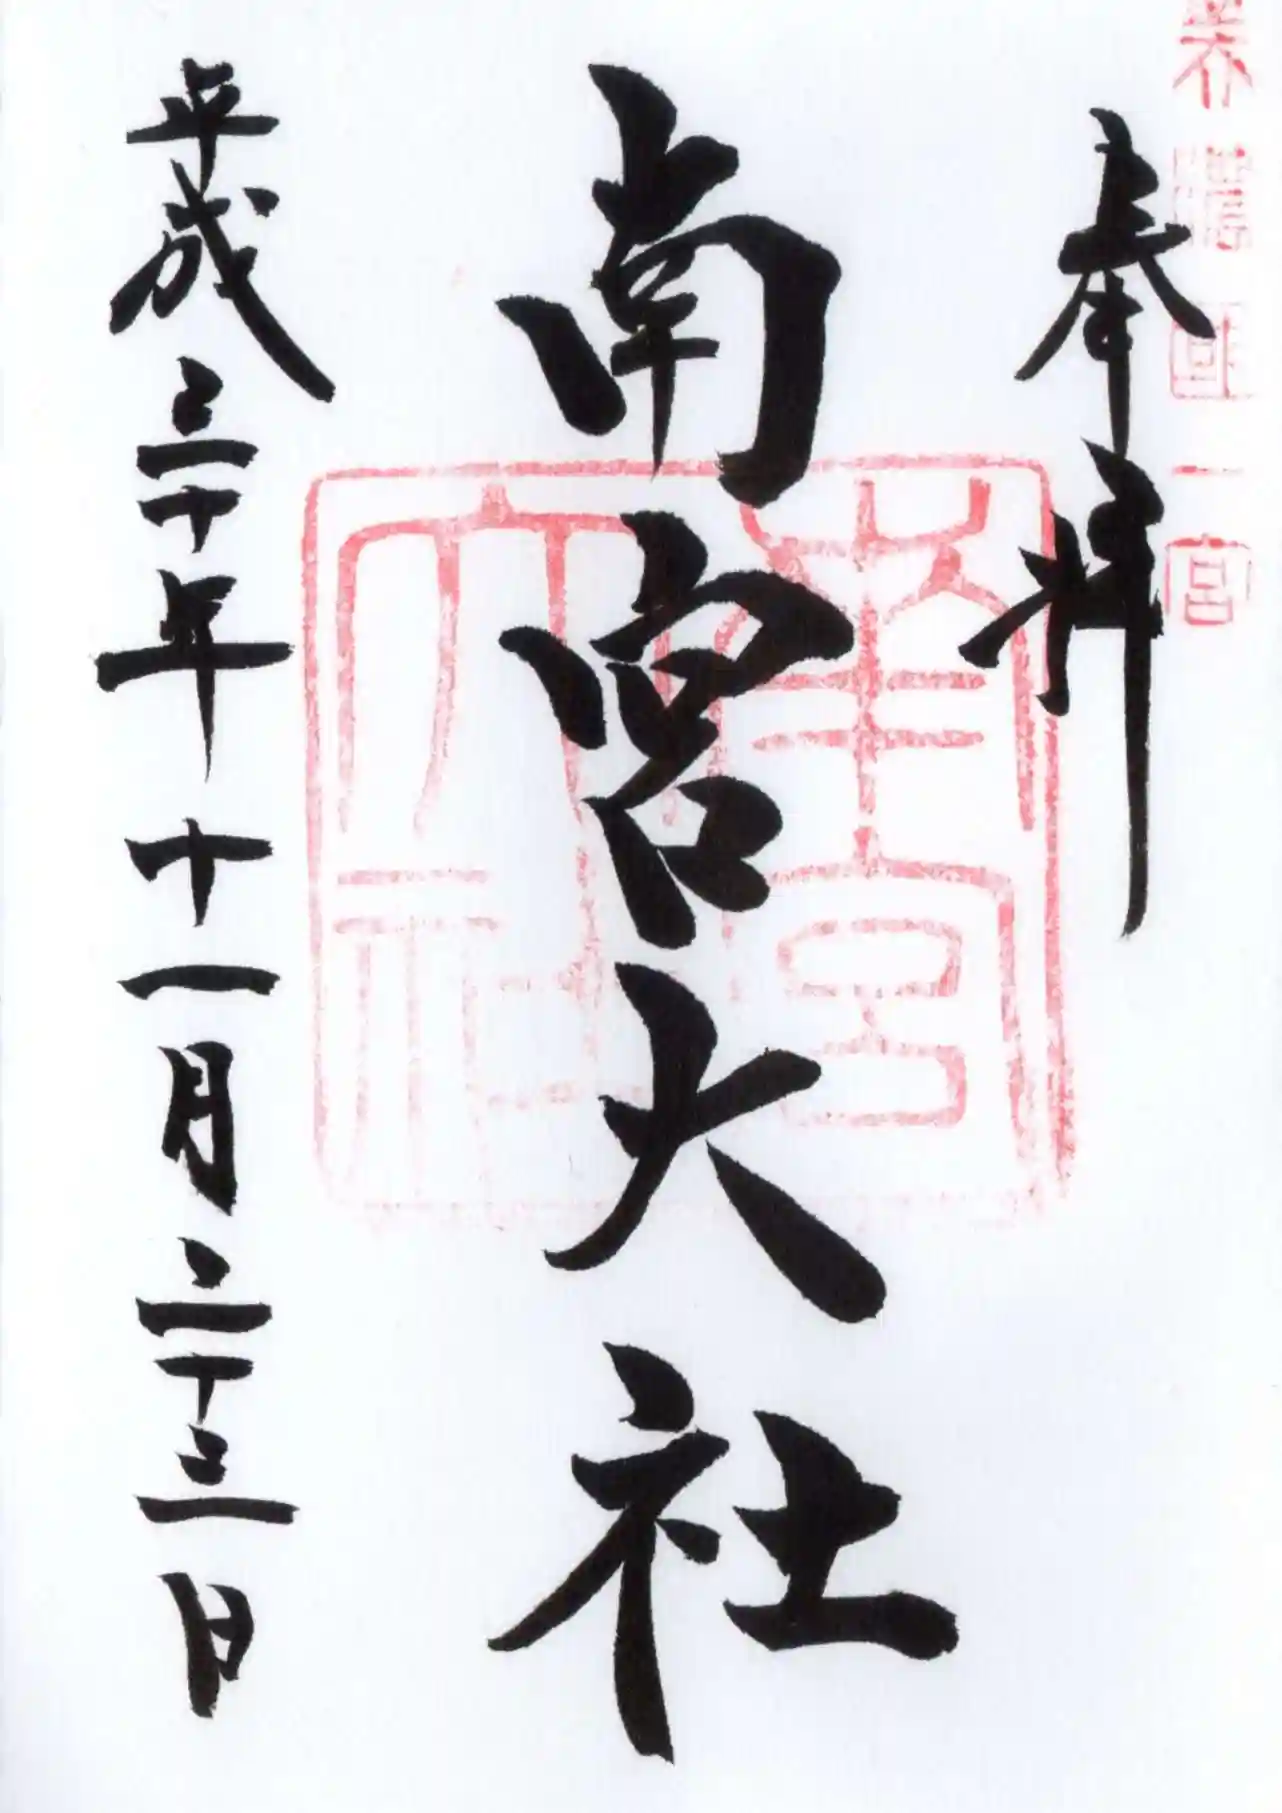 美濃國一宮
奉拝
南宮大社
南宮大社
平成三十年十一月二十三日